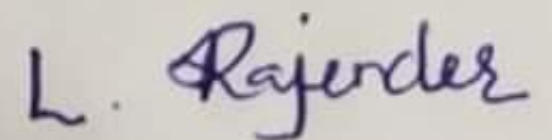 L. Rajender